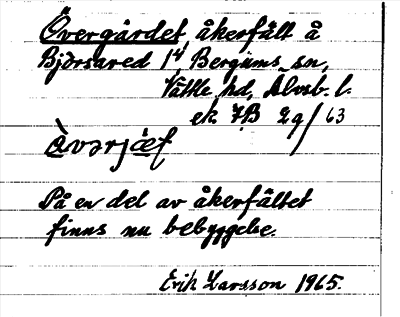 Övergärdet åkerfält å
Björsared 1⁴ Bergums sn,
Vättle hd, Älvsb. l.
ek 7B 2g/63
Àvərjæf
På en del av åkerfältet
finns nu bebyggelse.
Erik Larsson 1965.